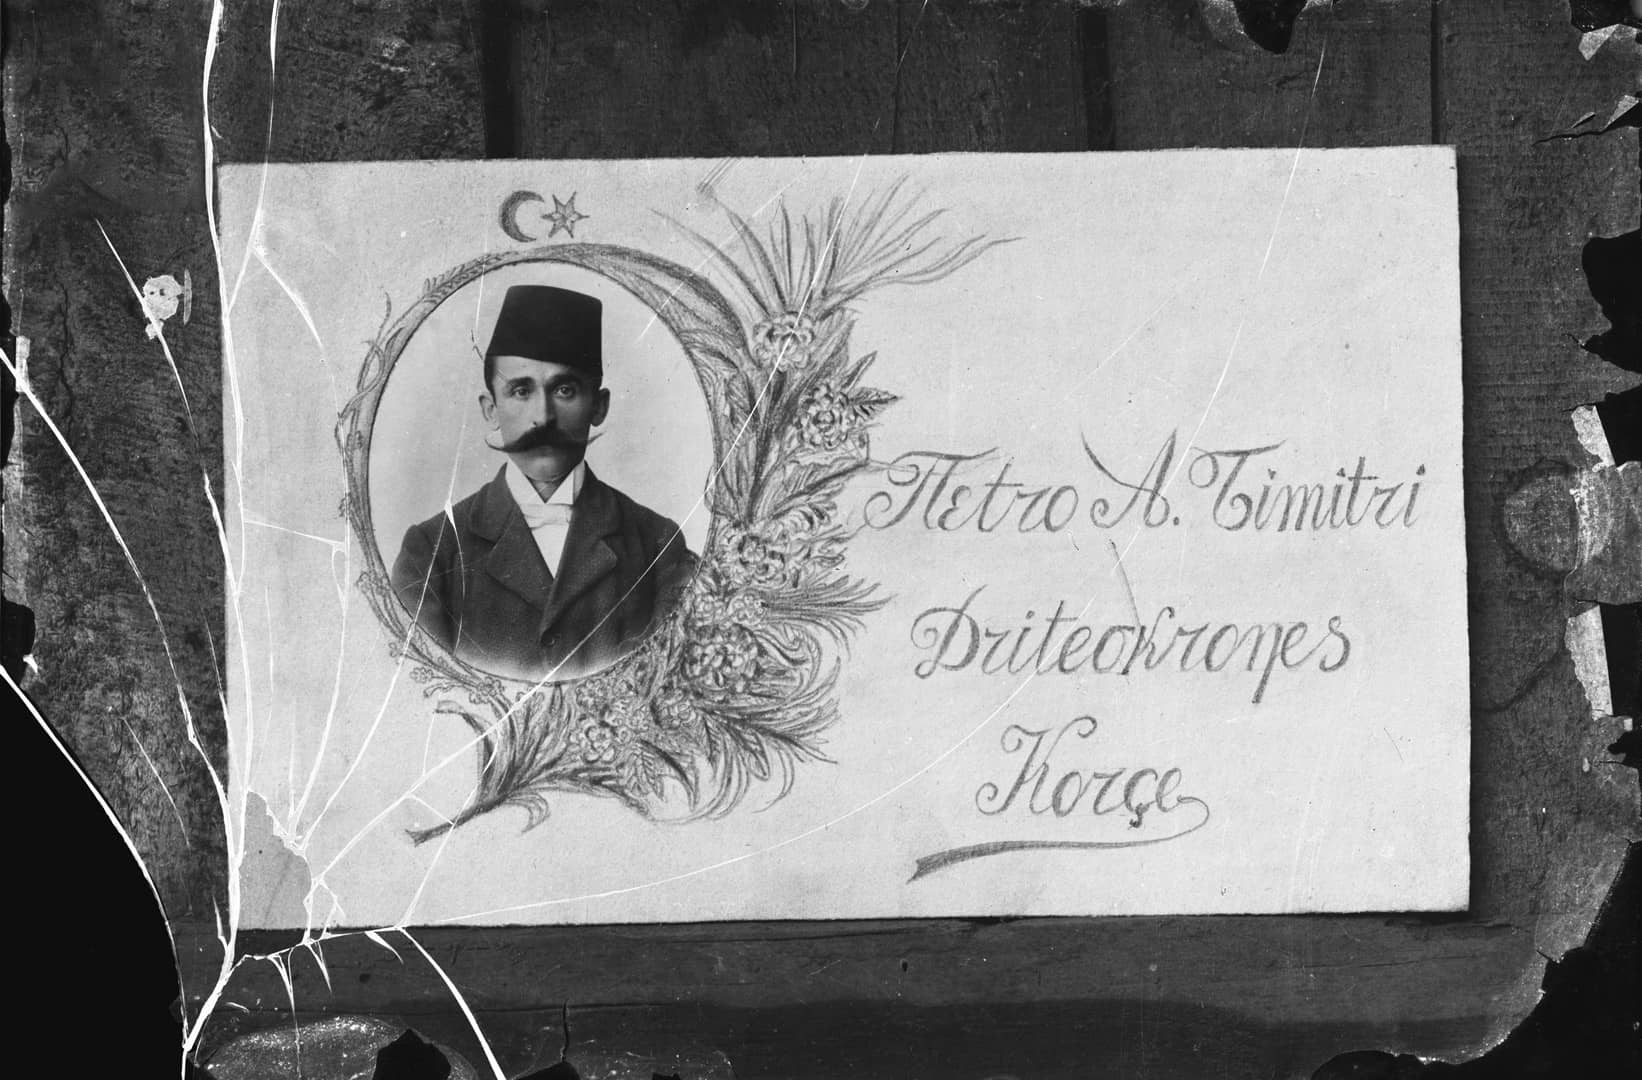 Petro A. Timitri
Driteokroņes
Korçe